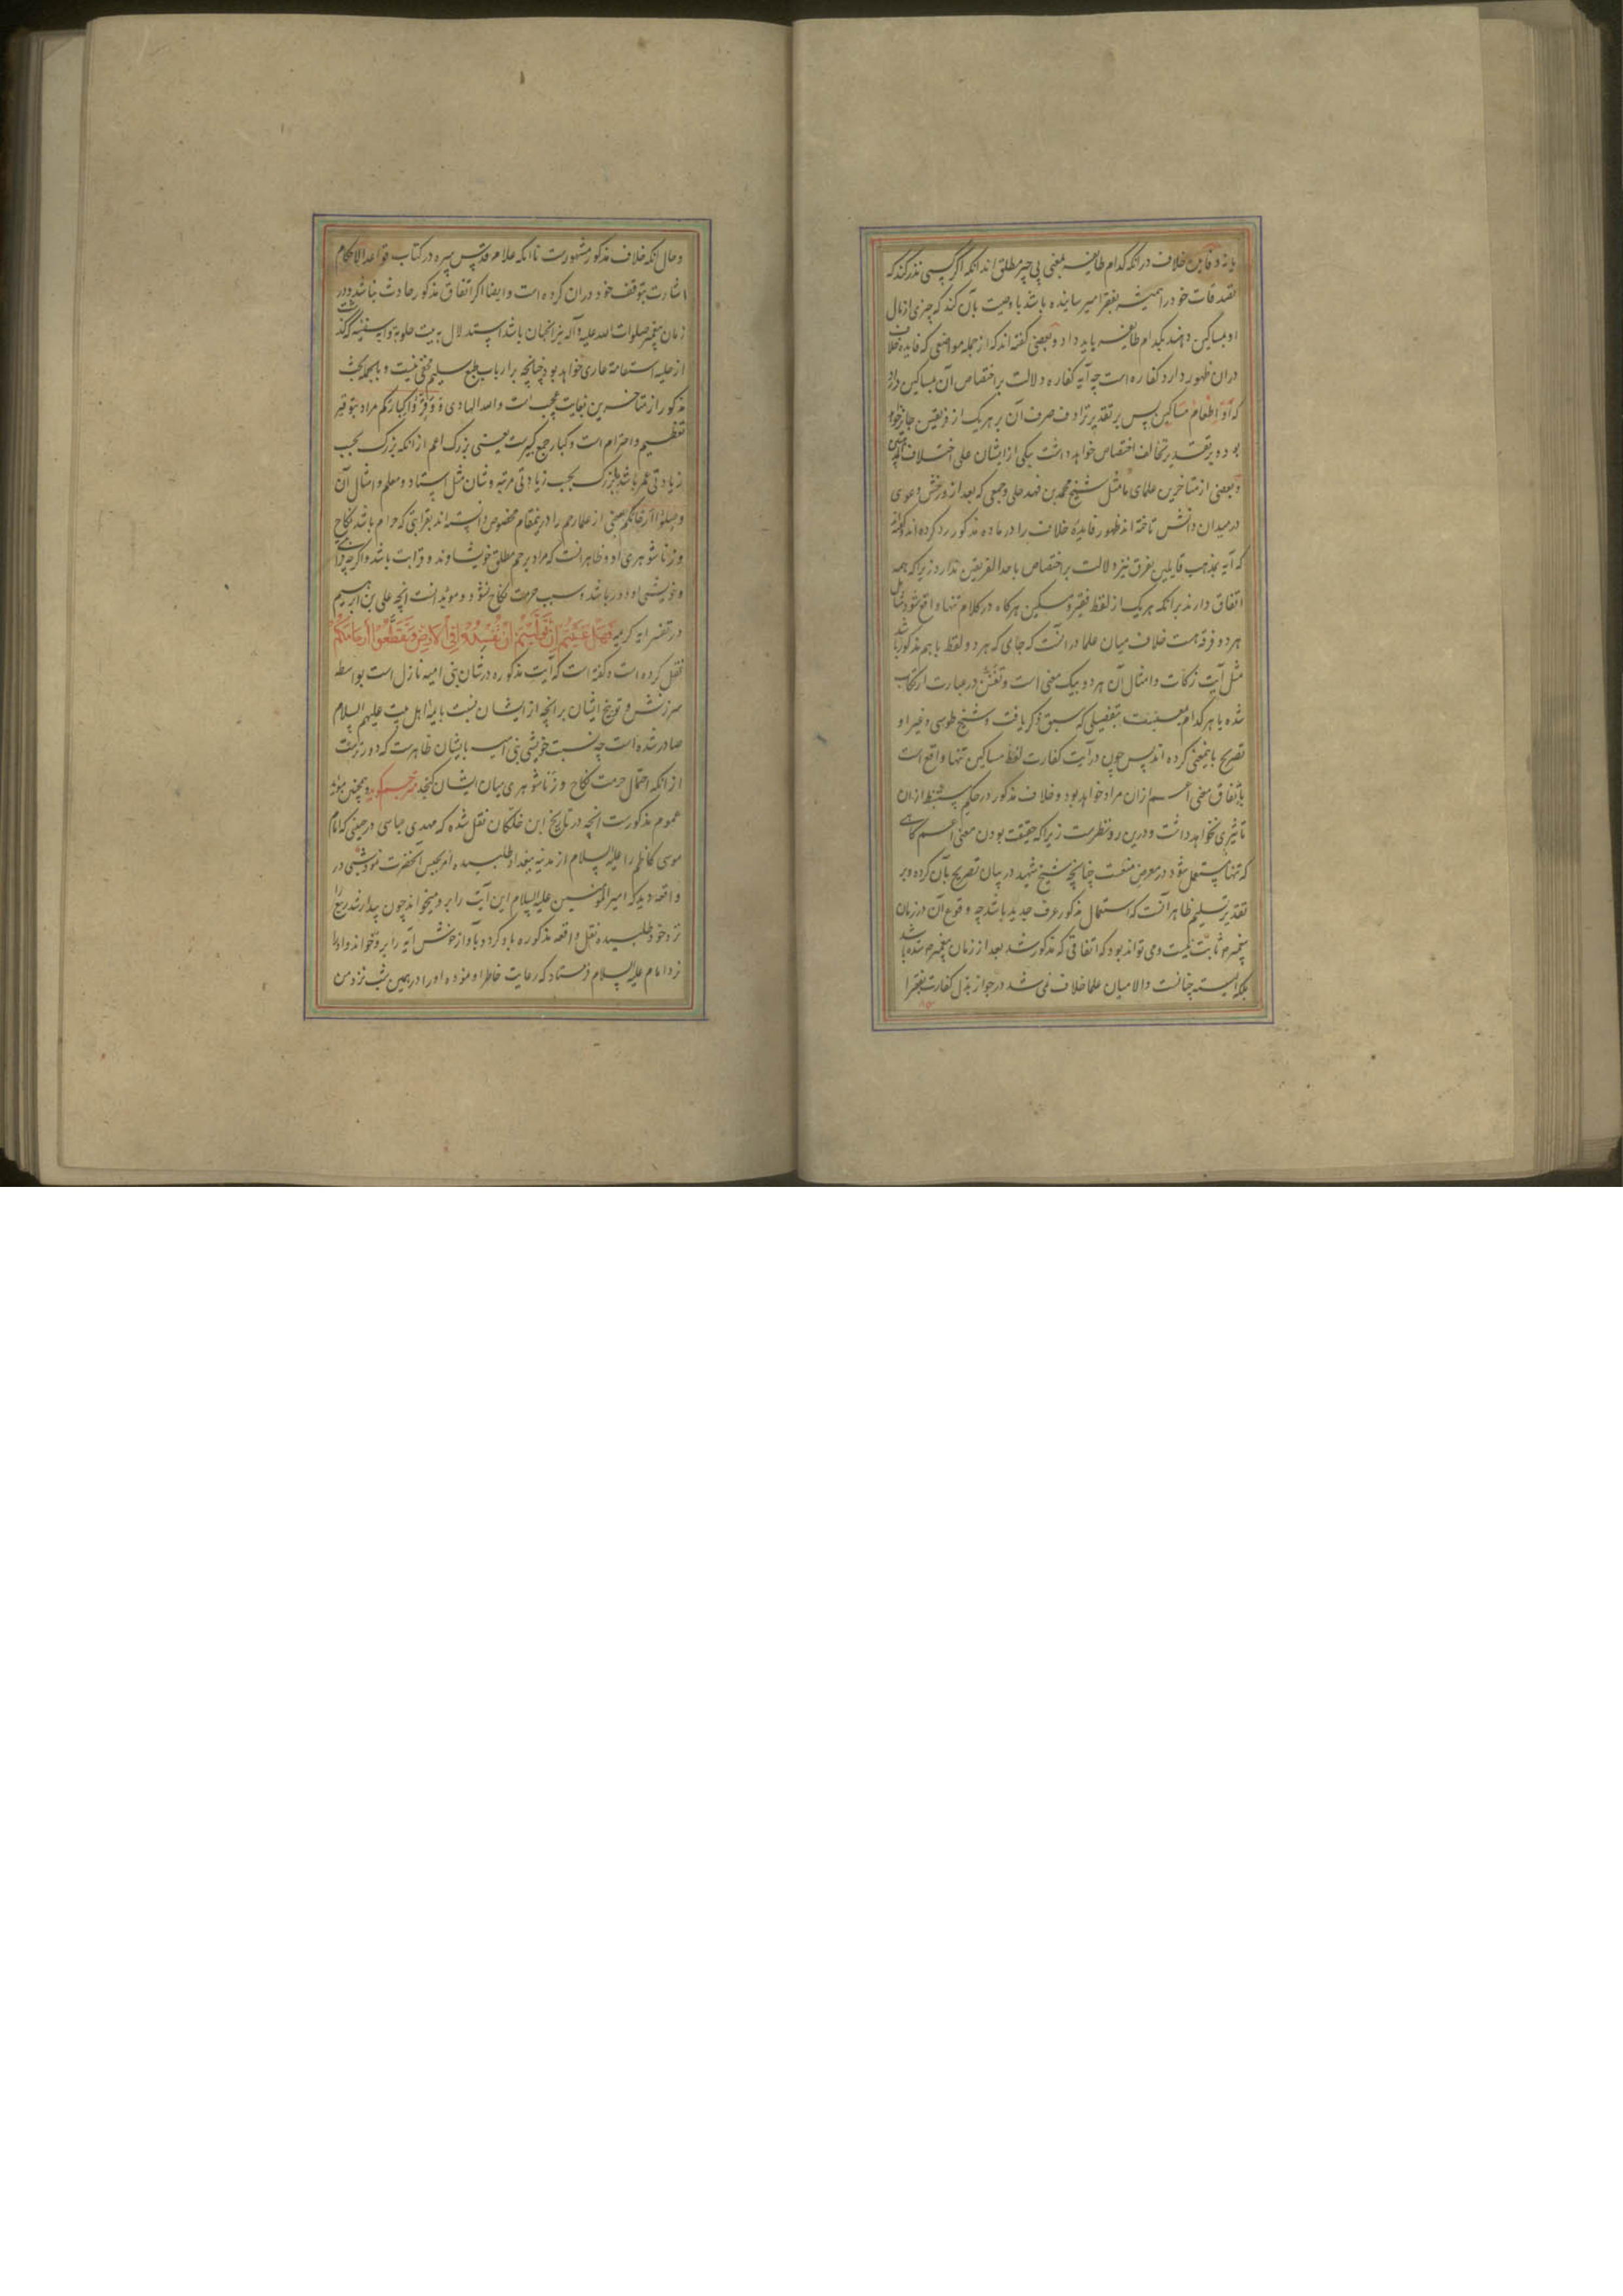 خلاف در انکه کدام طایفه بمعنی بی چیز مطلق اند انکه اگر کسی نذر کند که
تصدقات خود را همیشه بفقرا میرسانیده باشد یا وصیت بآن کند که چیزی از مال
او بمساکین دهند بکدام طایفه باید داد و بعضی گفته اند که از جمله مواضعی که فایده خلاف
دران ظهور دارد کفاره است چه آیه کفاره دلالت بر اختصاص آن بمساکین دارد
که او اطعام مساکین پس بر تقدیر ترادف صرف آن بر هریک از فریقین جایز خواهد
بود و بر تقدیر تخالف اختصاص خواهد داشت بیکی از ایشان علی اختلاف
و بعضی از متاخرین علمای ما مثل شیخ محمد بن فهد حلی و جمعی که بعد ازو رخش دعوی
در میدان دانش تاخته اند ظهور فایده خلاف را در ماده مذکور رد کرده اند و گفته
که آیه بمذهب قایلین بفرق نیز دلالت بر اختصاص باحد الفریقین ندارد زیرا که همه
اتفاق دارند برانکه هریک از لفظ فقیر و مسکین هرگاه در کلام تنها واقع شود شامل
هر دو فرقه هست خلاف میان علما در انست که جای که هر دو لفظ با هم مذکور باشد
مثل آیت زکات و امثال آن هر دو بیک معنی است و تفنن در عبارت ارتکاب
شده یا هر کدام بمعنیست بتفصیلی که سبق ذکر یافت و شیخ طوسی و غیر او
تصریح باینمعنی کرده اند پس چون در آیت کفارت لفظ مساکین تنها واقع است
باتفاق معنی اعم ازان مراد خواهد بود و خلاف مذکور در حکم مستنبط ازان
تاثیری نخواهد داشت و درین رد نظرست زیرا که حقیقت بودن معنی اعم گاهی
که تنها مستعمل شود در معرض منعست چنانچه شیخ شهید در بیان تصریح بآن کرده و بر
تقدیر تسلیم ظاهر آنست که استعمال مذکور عرف جدید باشد چه وقوع آن در زمان
پیغمبر ص ثابت نیست و می تواند بود که اتفاقی که مذکور شد بعد از زمان پیغمبر ص شده باشد
بلکه البته چنانست و الا میان علما خلاف نمی شد در جواز بذل کفارت بفقرا
و حال انکه خلاف مذکور مشهورست تا انکه علامه قدس سره در کتاب قواعد الاحکام
اشارت بتوقف خود دران کرده است و ایضا اگر اتفاق مذکور حادث نباشد و در
زمان پیغمبر صلوات الله علیه و آله نیز انچنان باشد استدلال به بیت حلوبه و آیه سفینه که گذشت
از حلیه استقامة عاری خواهد بود چنانچه بر ارباب طبع سلیم مخفی نیست و بالجمله بحث
مذکور از متاخرین بغایت عجب است والله الهادی و وقروا کبارکم مراد بتوقیر
تعظیم و احترام است و کبار جمع کبیرست یعنی بزرگ اعم از انکه بزرگ بحسب
زیادتی عمر باشد یا بزرگ بحسب زیادتی مرتبه و شان مثل استاد و معلم و امثال آن
وصلوا ارحامکم بعضی از علما رحم را درینمقام مخصوص دانسته اند بقرابتی که حرام باشد نکاح
و زناشوهری او و ظاهر انست که مراد برحم مطلق خویشاوند و قرابت باشد و اگرچه قرابت
و خویشی او دور باشد و سبب حرمت نکاح نشود و موید انست انچه علی بن ابرهیم
در تفسیر آیه کریمه فَهَلْ عَسَيْتُمْ اِنْ تَوَلَّيْتُمْ اَنْ تُفْسِدُوا فِي الْاَرْضِ وَتُقَطِّعُوا اَرْحَامَكُمْ
نقل کرده است و گفته است که آیت مذکوره در شان بنی امیه نازل است بواسطه
سرزنش و توبیخ ایشان بر انچه از ایشان نسبت بایمه اهل بیت علیهم السلام
صادر شده است چه نسبت خویشی بنی امیه بایشان ظاهرست که دورترست
از انکه احتمال حرمت نکاح و زناشوهری میان ایشان گنجد مترجم گوید و همچنین موید
عموم مذکورست انچه در تاریخ ابن خلکان نقل شده که مهدی عباسی در حینی که امام
موسی کاظم را علیه السلام از مدینه ببغداد طلبیده امر بحبس آنحضرت نمود شبی در
واقعه دید که امیر المومنین علیه السلام این آیت را برو میخواند چون بیدار شد ربیع را
نزد خود طلبیده نقل واقعه مذکوره باو کرد و بآواز خوش آیه را برو خواند و او را
نزد امام علیه السلام فرستاد که رعایت خاطر او نموده او را در همین شب نزد من